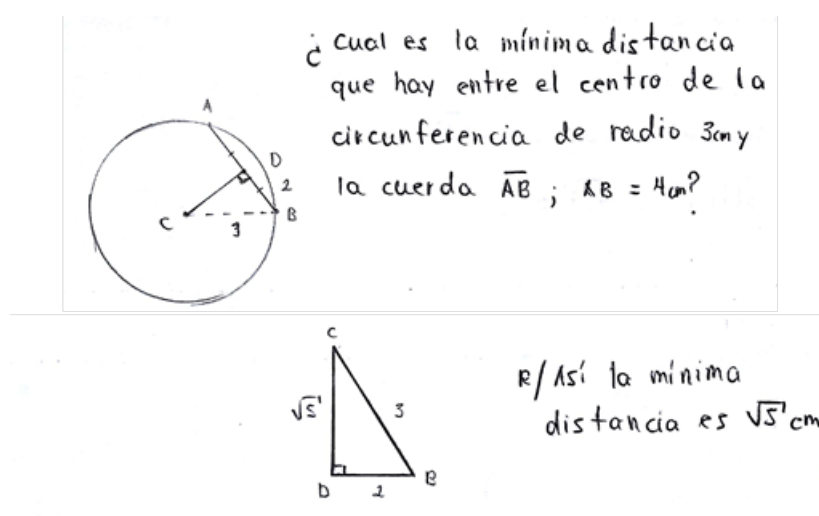 ¿ Cual es la mínima distancia
que hay entre el centro de la
circunferencia de radio 3cm y
la cuerda AB ; AB = 4cm?
A
D
2
B
C
3
C
√5
3
D
2
B
R/ Así la mínima
distancia es √5 cm